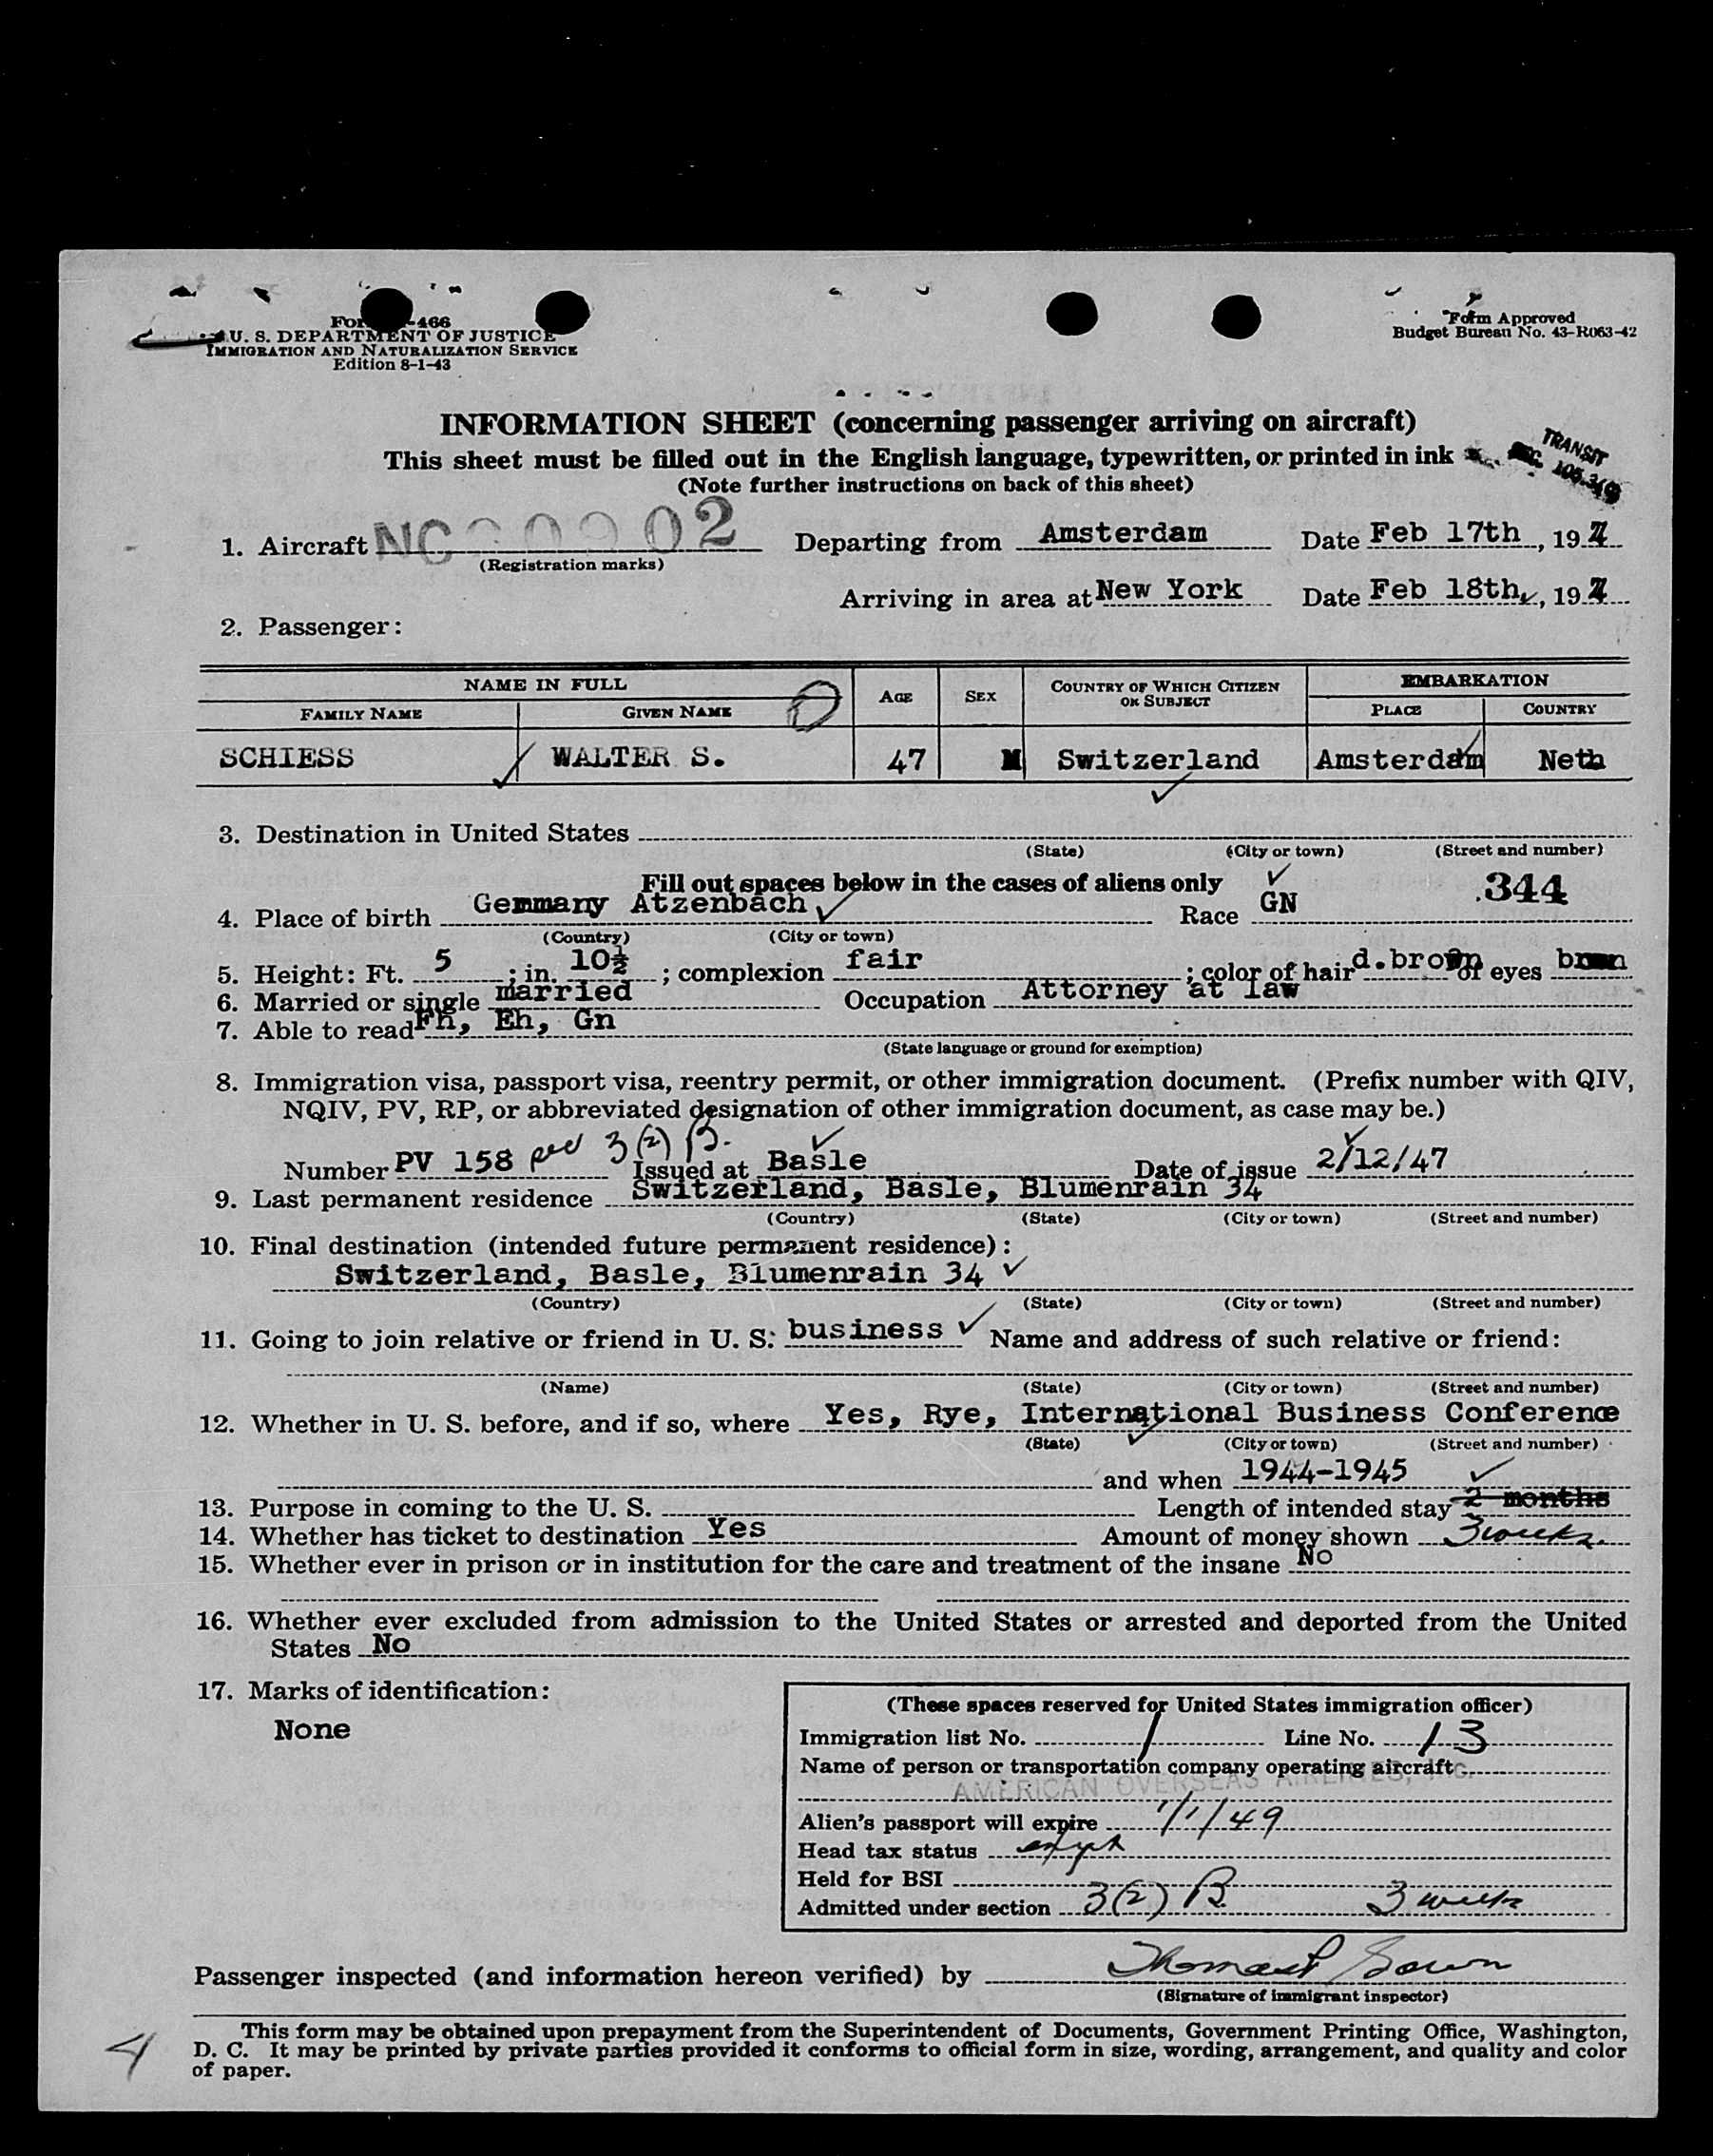 -466
U. S. DEPARTMENT OF JUSTICE
IMMIGRATION AND NATURALIZATION SERVICE
Edition 8-1-43
Form Approved
Budget Bureau No. 43-R063-42
INFORMATION SHEET (concerning passenger arriving on aircraft)
This sheet must be filled out in the English language, typewritten, or printed in ink
TRANSIT
(Note further instructions on back of this sheet)
1. Aircraft NC 02 Departing from Amsterdam Date Feb 17th, 19
(Registration marks)
Arriving in area at New York Date Feb 18th, 19
2. Passenger:
NAME IN FULL AGE SEX COUNTRY OF WHICH CITIZEN OR SUBJECT EMBARKATION
FAMILY NAME GIVEN NAME PLACE COUNTRY
SCHIESS WALTER S. 47 M Switzerland Amsterdam Neth
3. Destination in United States
(State) (City or town) (Street and number)
Fill out spaces below in the cases of aliens only
344
4. Place of birth Gemmany Atzenbach Race GN
(Country) (City or town)
5. Height: Ft. 5 ; in. 10½ ; complexion fair ; color of hair d.brown of eyes
6. Married or single married Occupation Attorney at law
7. Able to read Fh, Eh, Gn
(State language or ground for exemption)
8. Immigration visa, passport visa, reentry permit, or other immigration document. (Prefix number with QIV,
NQIV, PV, RP, or abbreviated designation of other immigration document, as case may be.)
Number PV 158 3(2) B. Issued at Basle Date of issue 2/12/47
9. Last permanent residence Switzerland, Basle, Blumenrain 34
(Country) (State) (City or town) (Street and number)
10. Final destination (intended future permanent residence):
Switzerland, Basle, Blumenrain 34
(Country) (State) (City or town) (Street and number)
11. Going to join relative or friend in U. S: business Name and address of such relative or friend:
(Name) (State) (City or town) (Street and number)
12. Whether in U. S. before, and if so, where Yes, Rye, International Business Conference
(State) (City or town) (Street and number)
and when 1944-1945
13. Purpose in coming to the U. S. Length of intended stay 2 months
14. Whether has ticket to destination Yes Amount of money shown 3 weeks.
15. Whether ever in prison or in institution for the care and treatment of the insane No
16. Whether ever excluded from admission to the United States or arrested and deported from the United
States No
17. Marks of identification:
None
(These spaces reserved for United States immigration officer)
Immigration list No. 1 Line No. 13
Name of person or transportation company operating aircraft
AMERICAN OVERSEAS AIRLINES, INC.
Alien's passport will expire 1/1/49
Head tax status
Held for BSI
Admitted under section 3(2) B 3 weeks
Passenger inspected (and information hereon verified) by
(Signature of immigrant inspector)
This form may be obtained upon prepayment from the Superintendent of Documents, Government Printing Office, Washington,
D. C. It may be printed by private parties provided it conforms to official form in size, wording, arrangement, and quality and color
of paper.
4